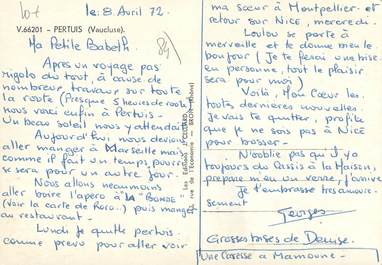 lot
le: 8. Avril 72.
V.66201 - PERTUIS (Vaucluse).
84)
Ma Petite Babeth
Après un voyage pas
rigolo du tout, à cause de
nombreux travaux sur toute
la route (Presque 5 heures de route)
nous voici enfin à Pertuis -
Un beau soleil nous y attendait
Aujourd'hui nous devions
aller manger à Marseille mais
comme il fait un temps pourri
se sera pour un autre jour.
Nous allons neaumoins
aller boire l'apéro à la "BONDE"
(voir la carte de Roro...) puis manger
au restaurant -
Lundi je quitte pertuis
comme prevu pour aller voir
Les Editions J. CELLARD
rue de l'Economie BRON (Rhône)
ma sœur à Montpellier et
retour sur Nice, mercredi.
Loulou se porte à
merveille et te donne m le
bonjour (Je te ferai une bise
en personne, tout le plaisir
sera pour moi)
Voilà, Mon Cœur les
touts dernières nouvelles.
Je vais te quitter, profite
que je ne sois pas à Nice
pour bosser -
N'oublie pas qu' J. vo
toujours du Pastis à la Maison,
prépare m'en un verre, j'arrive
Je t'embrasse tres amoureu-
sement
Grosses bises de Denise.
Une Caresse a Mamoune -